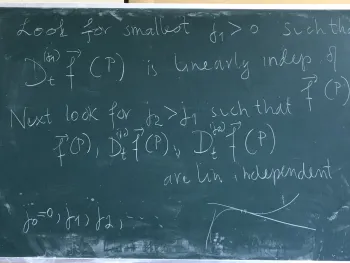 Look for smallest j₁>0 such tha
D_t^{(j₁)} f⃗ (P) is linearly indep. of
f⃗(P)
Next look for j₂>j₁ such that
f⃗(P), D_t^{(j₁)} f⃗(P), D_t^{(j₂)} f⃗(P)
are lin independent
j₀=0, j₁, j₂, ....